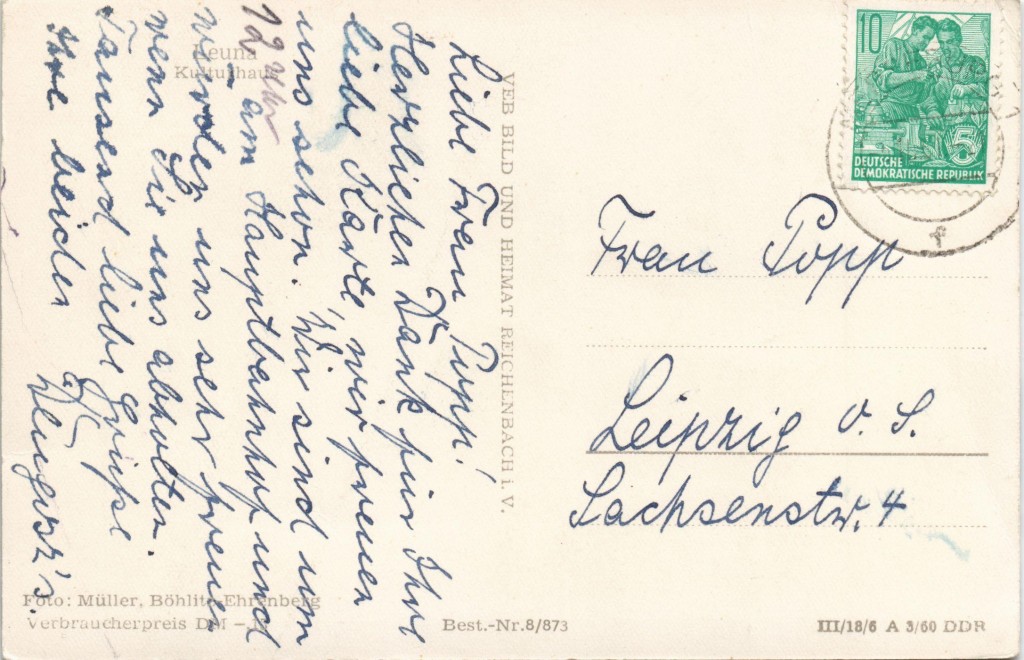 Leuna
Kulturhaus
Liebe Frau Popp!
Herzlichen Dank für Ihre
liebe Karte, wir freuen
uns schon. Wir sind um
12 Uhr am Hauptbahnhof und
würden uns sehr freuen
wenn Sie uns abholten.
Tausend liebe Grüße
Ihre beiden
Foto: Müller, Böhlitz-Ehrenberg
Verbraucherpreis DM
VEB BILD UND HEIMAT REICHENBACH i. V.
Best.-Nr. 8/873
10
5
DEUTSCHE
DEMOKRATISCHE REPUBLIK
f
Frau Popp
Leipzig
Sachsenstr. 4
III/18/6 A 3/60 DDR